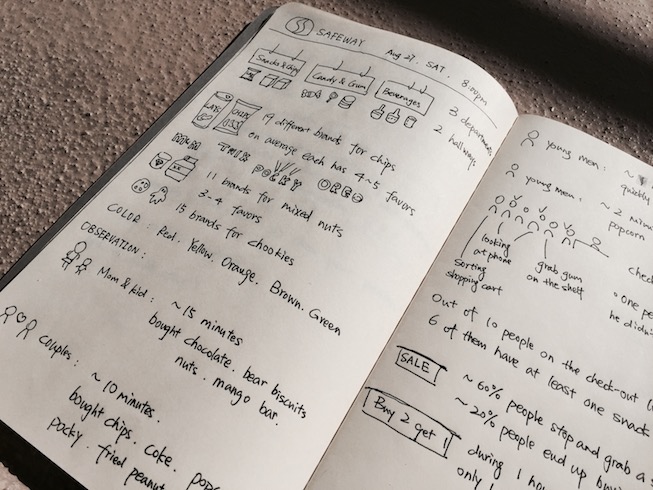 SAFEWAY
Aug 27. SAT. 8:00pm
Snacks & Chips
Candy & Gum
Beverages
3 departments
2 hallways
LAYS
19 different brands for chips
on average each has 4~5 favors
M&M
TWIX
POCKY
OREO
11 brands for mixed nuts
3~4 favors
15 brands for chookies
COLOR: Red. Yellow. Orange. Brown. Green
OBSERVATION:
Mom & kid: ~15 minutes
bought chocolate. bear biscuits
nuts. mango bar.
Couples: ~10 minutes.
bought chips. coke. pop
pocky. fried peanut
young men: ~
quickly
young men: ~2 minu
popcorn
looking
at phone
sorting
shopping cart
grab gum
on the shelf
check
one pe
he didn
Out of 10 people on the check-out
6 of them have at least one snack
SALE
~60% people stop and grab a s
~20% people end up buyi
Buy 2 get 1
during 1 hou
only